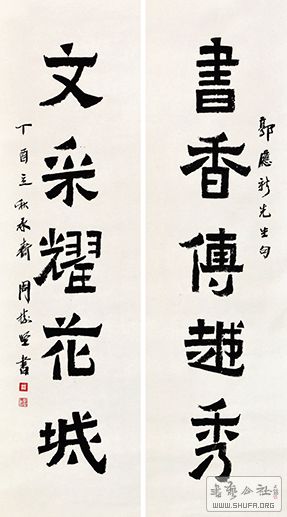 應新先生句
書香傳越秀
文采耀花城
丁酉立秋永齋周樹堅書
書藝公社
WWW.SHUFA.ORG